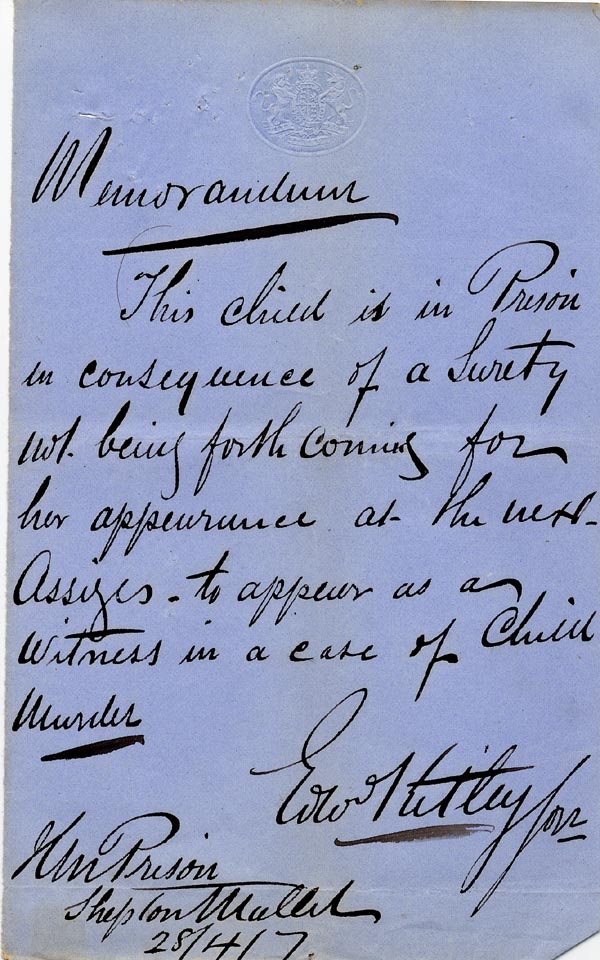 Memorandum
This child is in Prison
in consequence of a Surety
not being forth Coming for
her appearance at the next
Assizes - to appear as a
Witness in a case of Child
Murder
Edwd
HM Prison
Shepton Mallet
28/4/7.